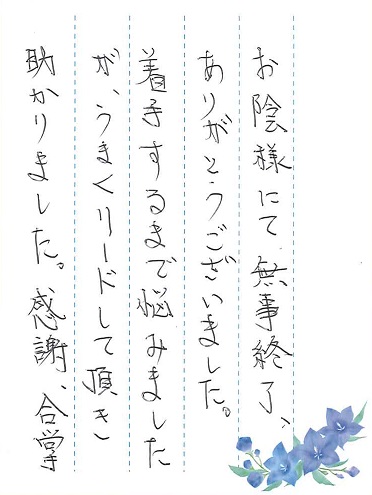 お陰様にて無事終了、
ありがとうございました。
着手するまで悩みました
が、うまくリードして頂き
助かりました。感謝、合掌